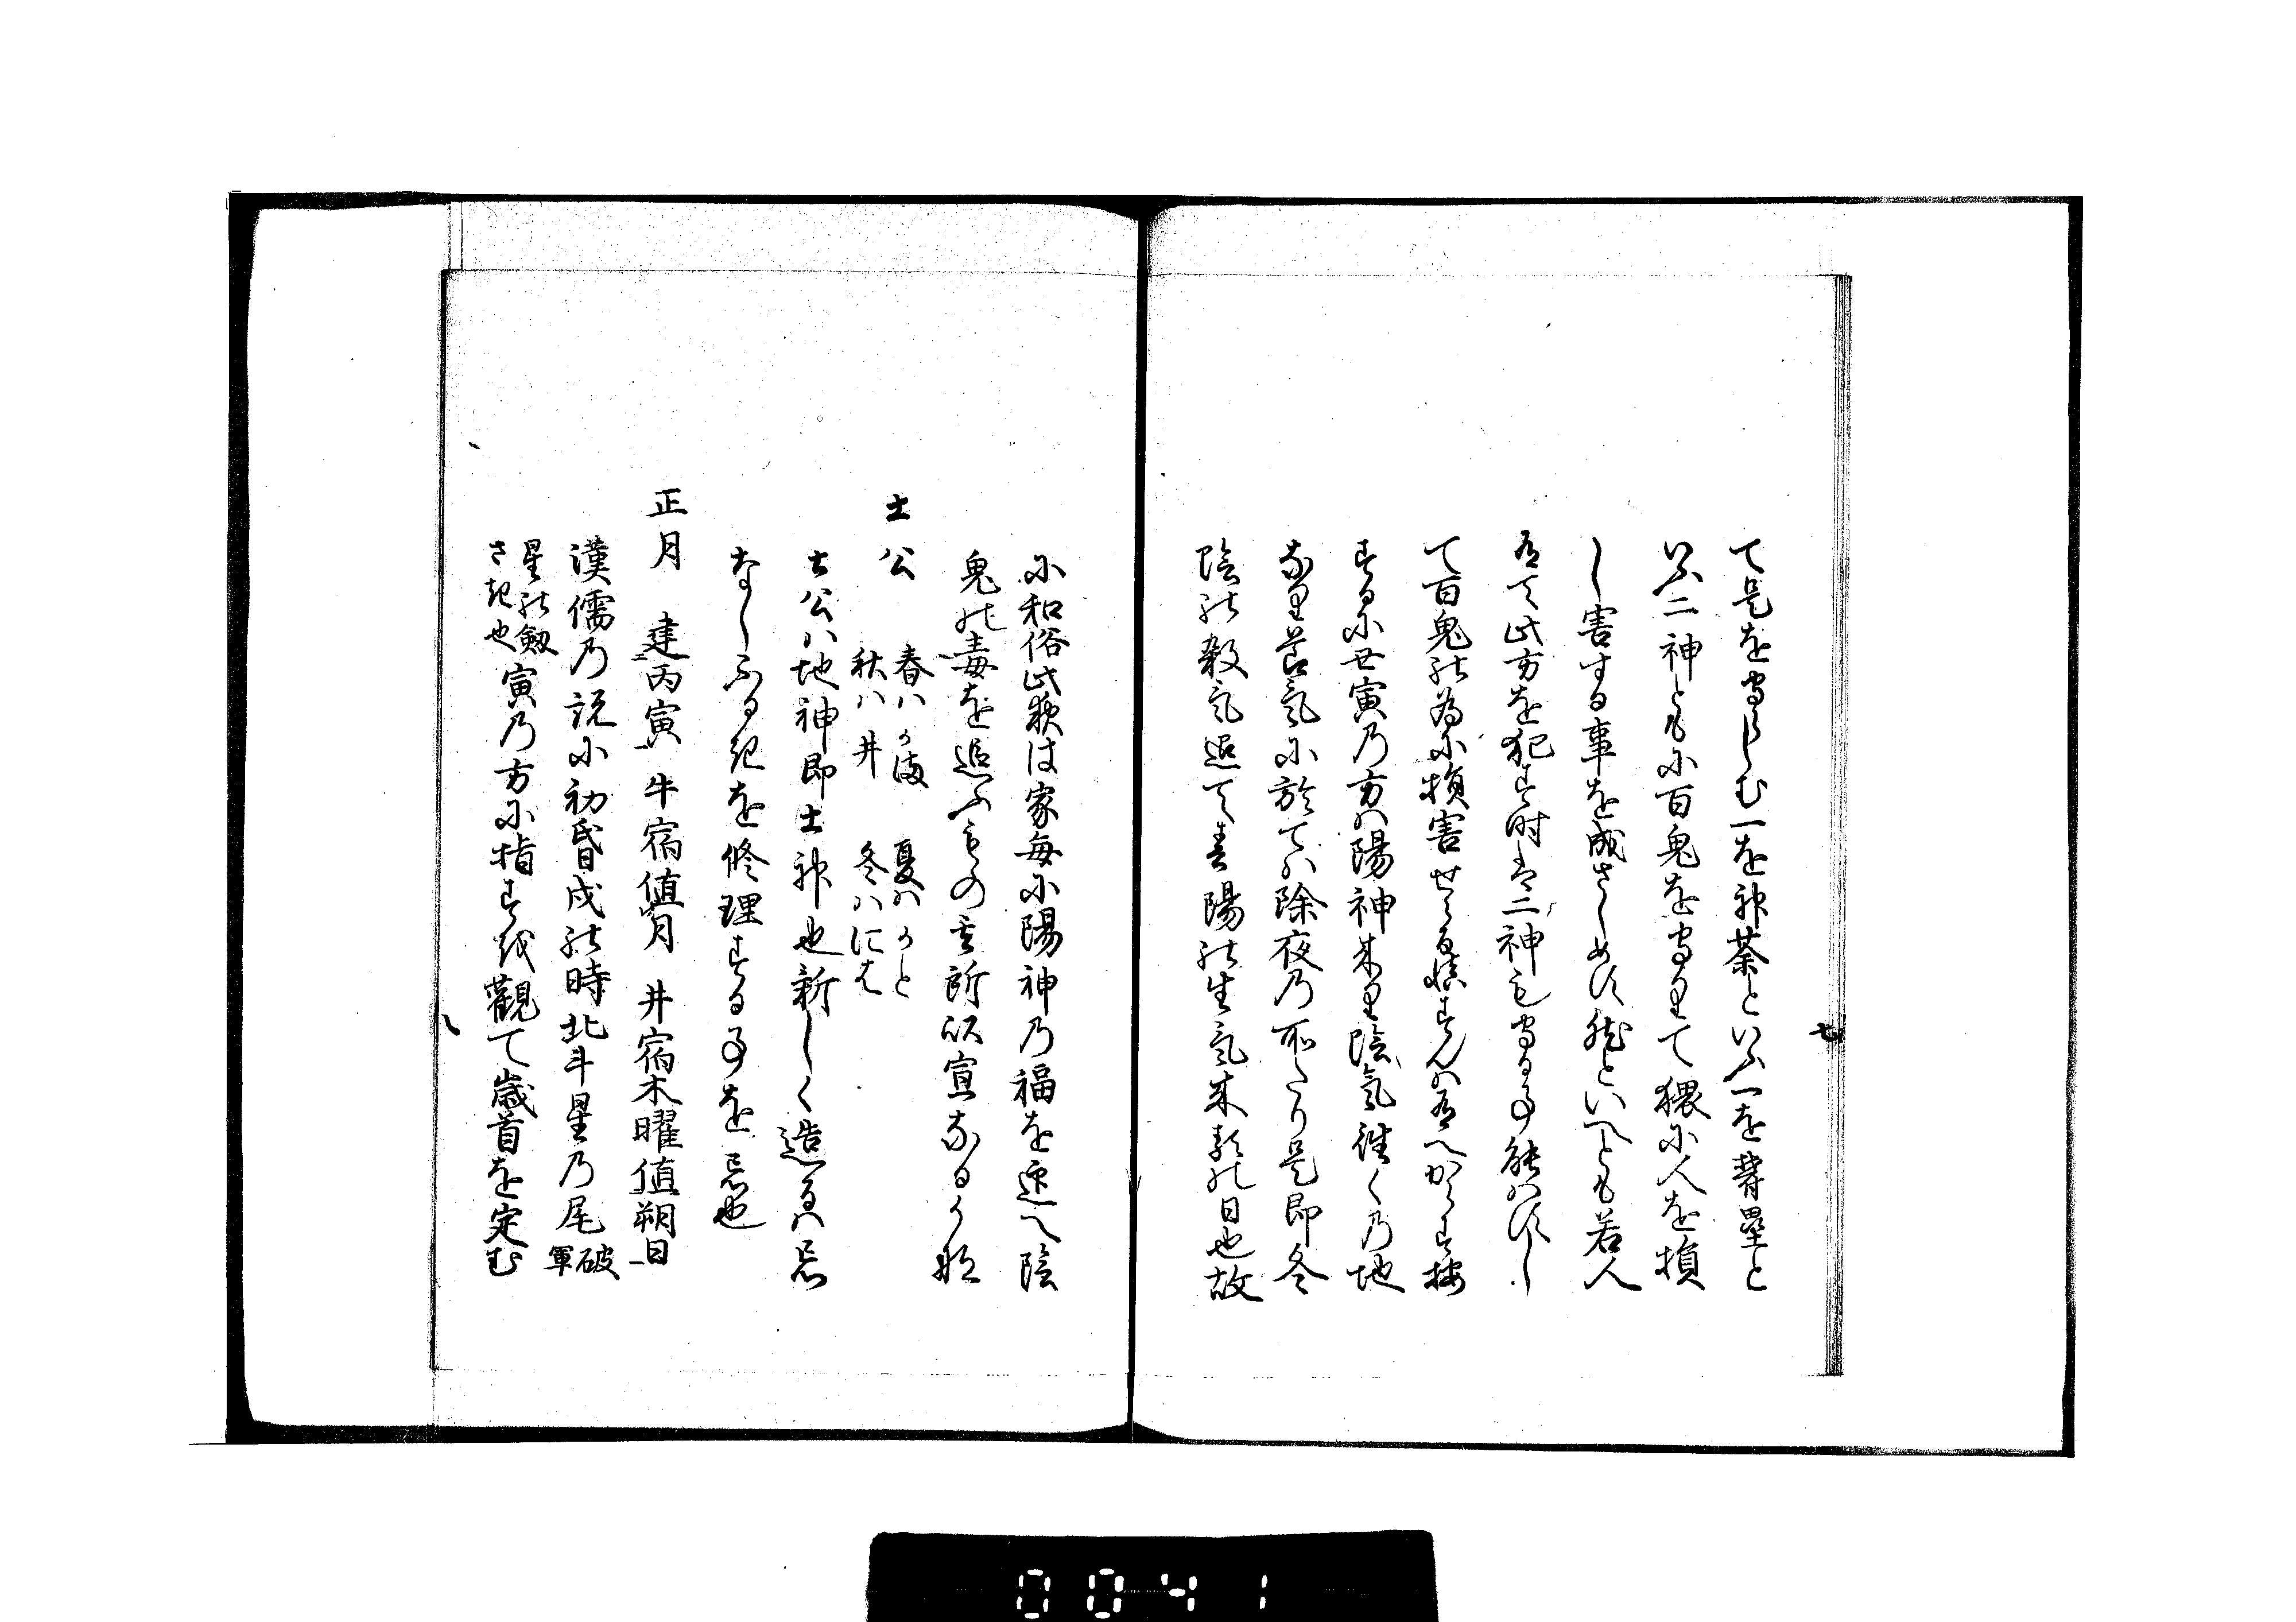 て是を守らしむ一を神荼といふ一を欝塁と
いふ二神ともに百鬼を守りて猥に人を損
し害する事を成さしめす然といへとも若人
有て此方を犯す時は二神も守る事能はすし
て百鬼の為に損害せらる慎すんは有へからす按
するに丑寅乃方は陽神来り陰気往くの地
なり节気に於ては除夜乃所たり是即冬
陰の殺気退て春陽の生気来るの日也故
七
に和俗此夜は家毎に陽神乃福を迎へ陰
鬼の毒を追ふもの其所以宜なるか耶
土公 春ハかま 夏ハかと
秋ハ井 冬ハには
土公ハ地神即土神也新しく造るハ忌
なしふるきを修理する事を忌也
正月 建丙寅 牛宿値月 井宿木曜値朔日
漢儒乃説に初昏戌の時北斗星乃尾破軍
星の劔さき也寅乃方に指すを觀て歳首を定む
0041